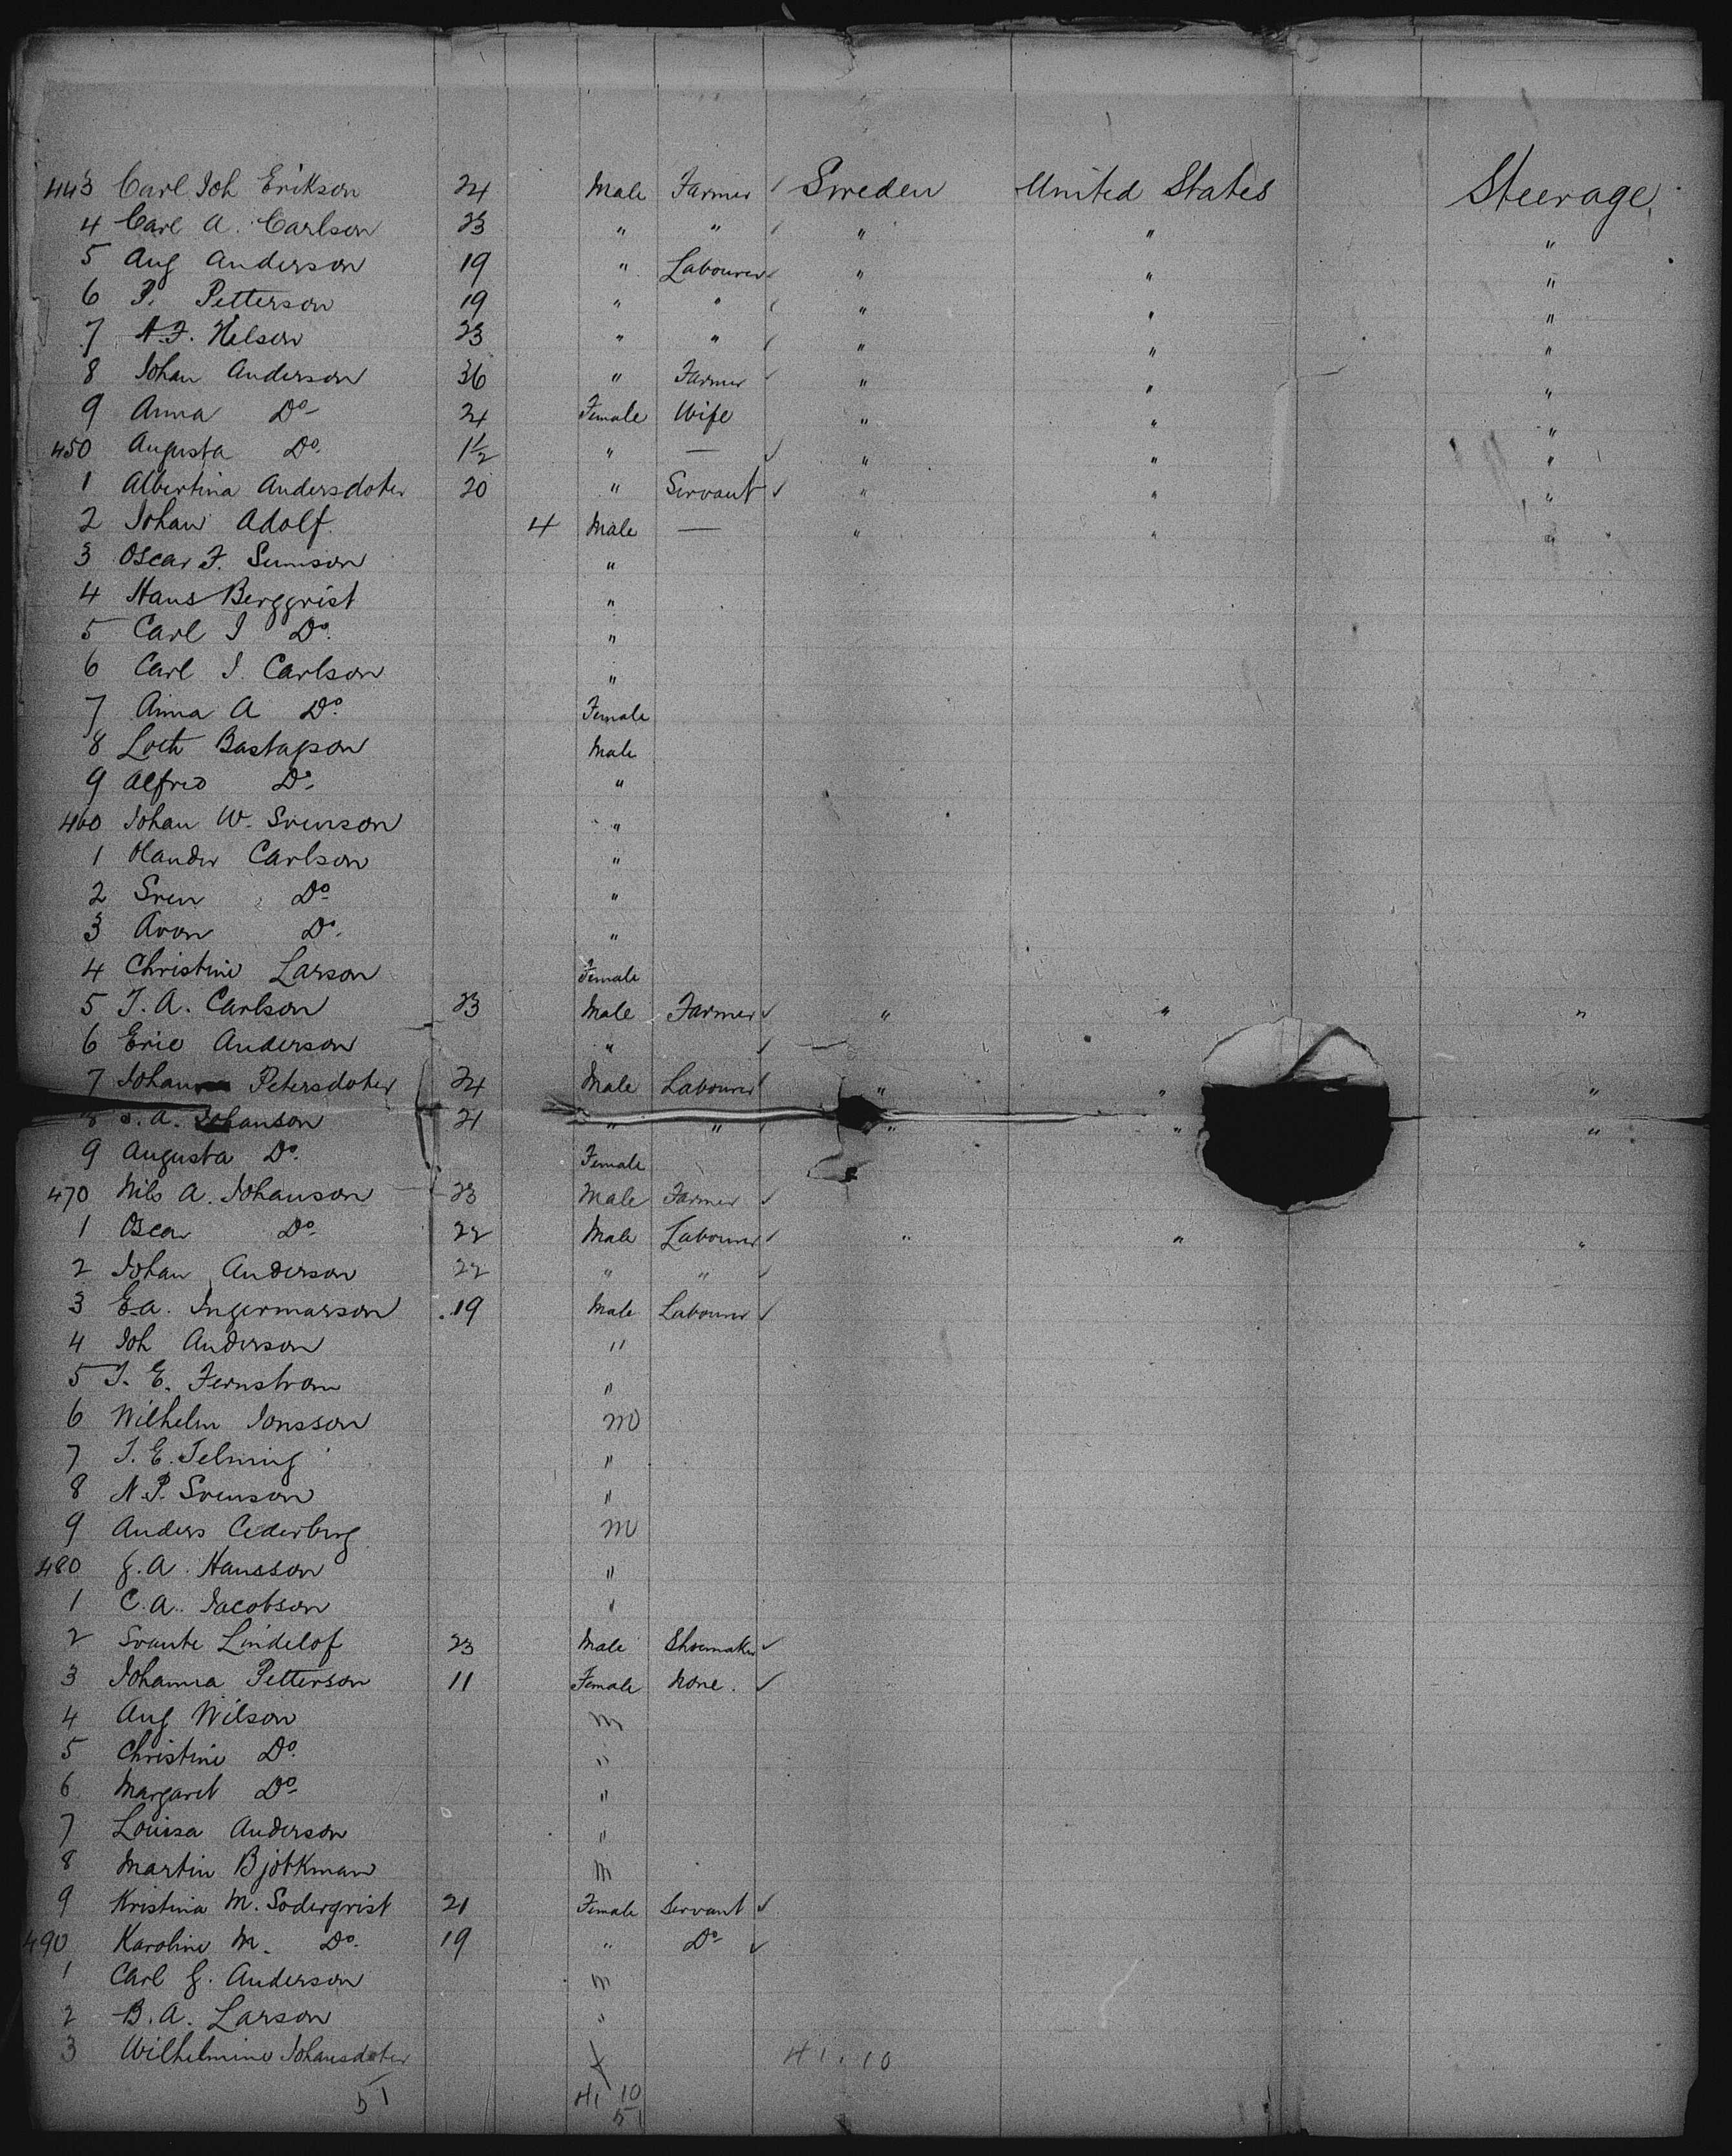 443 Carl Joh Erikson 24 Male Farmer ✓ Sweden United States Steerage
4 Carl A. Carlson 23 " " ✓ " " "
5 Aug Anderson 19 " Labourer ✓ " " "
6 P. Petterson 19 " " ✓ " " "
7 A.F. Nelson 23 " " ✓ " " "
8 Johan Anderson 36 " Farmer ✓ " " "
9 Anna Do 24 Female Wife " " "
450 Augusta Do. 1½ " — ✓ " " "
1 Albertina Andersdoter 20 " Servant ✓ " " "
2 Johan Adolf. 4 Male — " " "
3 Oscar F. "
4 Hans Bergqrist "
5 Carl J Do. "
6 Carl J. Carlson "
7 Anna A Do. Female
8 Male
9 Alfred Do. "
460 Johan W. Svenson "
1 Carlson "
2 Sven Do "
3 Aron Do. "
4 Christine Larson Female
5 J. A. Carlson 23 Male Farmer ✓ " " "
6 Eric Anderson " ✓ —
7 Petersdoter 24 Male Labourer ✓ " " "
8 J. A. Johanson 21 " " ✓ " " "
9 Augusta Do. Female
470 Nils A. Johanson 23 Male Farmer ✓
1 Oscar Do 22 Male Labourer ✓ " " "
2 Johan Anderson 22 " " ✓
3 E.A. Ingermarson 19 Male Labourer ✓
4 Joh Anderson "
5 J. E. Fernstrom "
6 Wilhelm Jonsson m
7 J. E. "
8 N. P. Svenson "
9 Anders Cederberg m
480 G. A. Hansson "
1 C. A. Jacobson "
2 Svante Lindelof 23 Male Shoemaker ✓
3 Johanna Petterson 11 Female None. ✓
4 Aug Wilson m
5 Christine Do. "
6 Margaret Do "
7 Louisa Anderson "
8 Martin Bjorkman m
9 Kristina M. Soderqrist 21 Female Servant ✓
490 Karoline M. Do. 19 " Do ✓
1 Carl G. Anderson m
2 B. A. Larson "
3 Wilhelmine Johansdoter 41.10
51 41 10
51